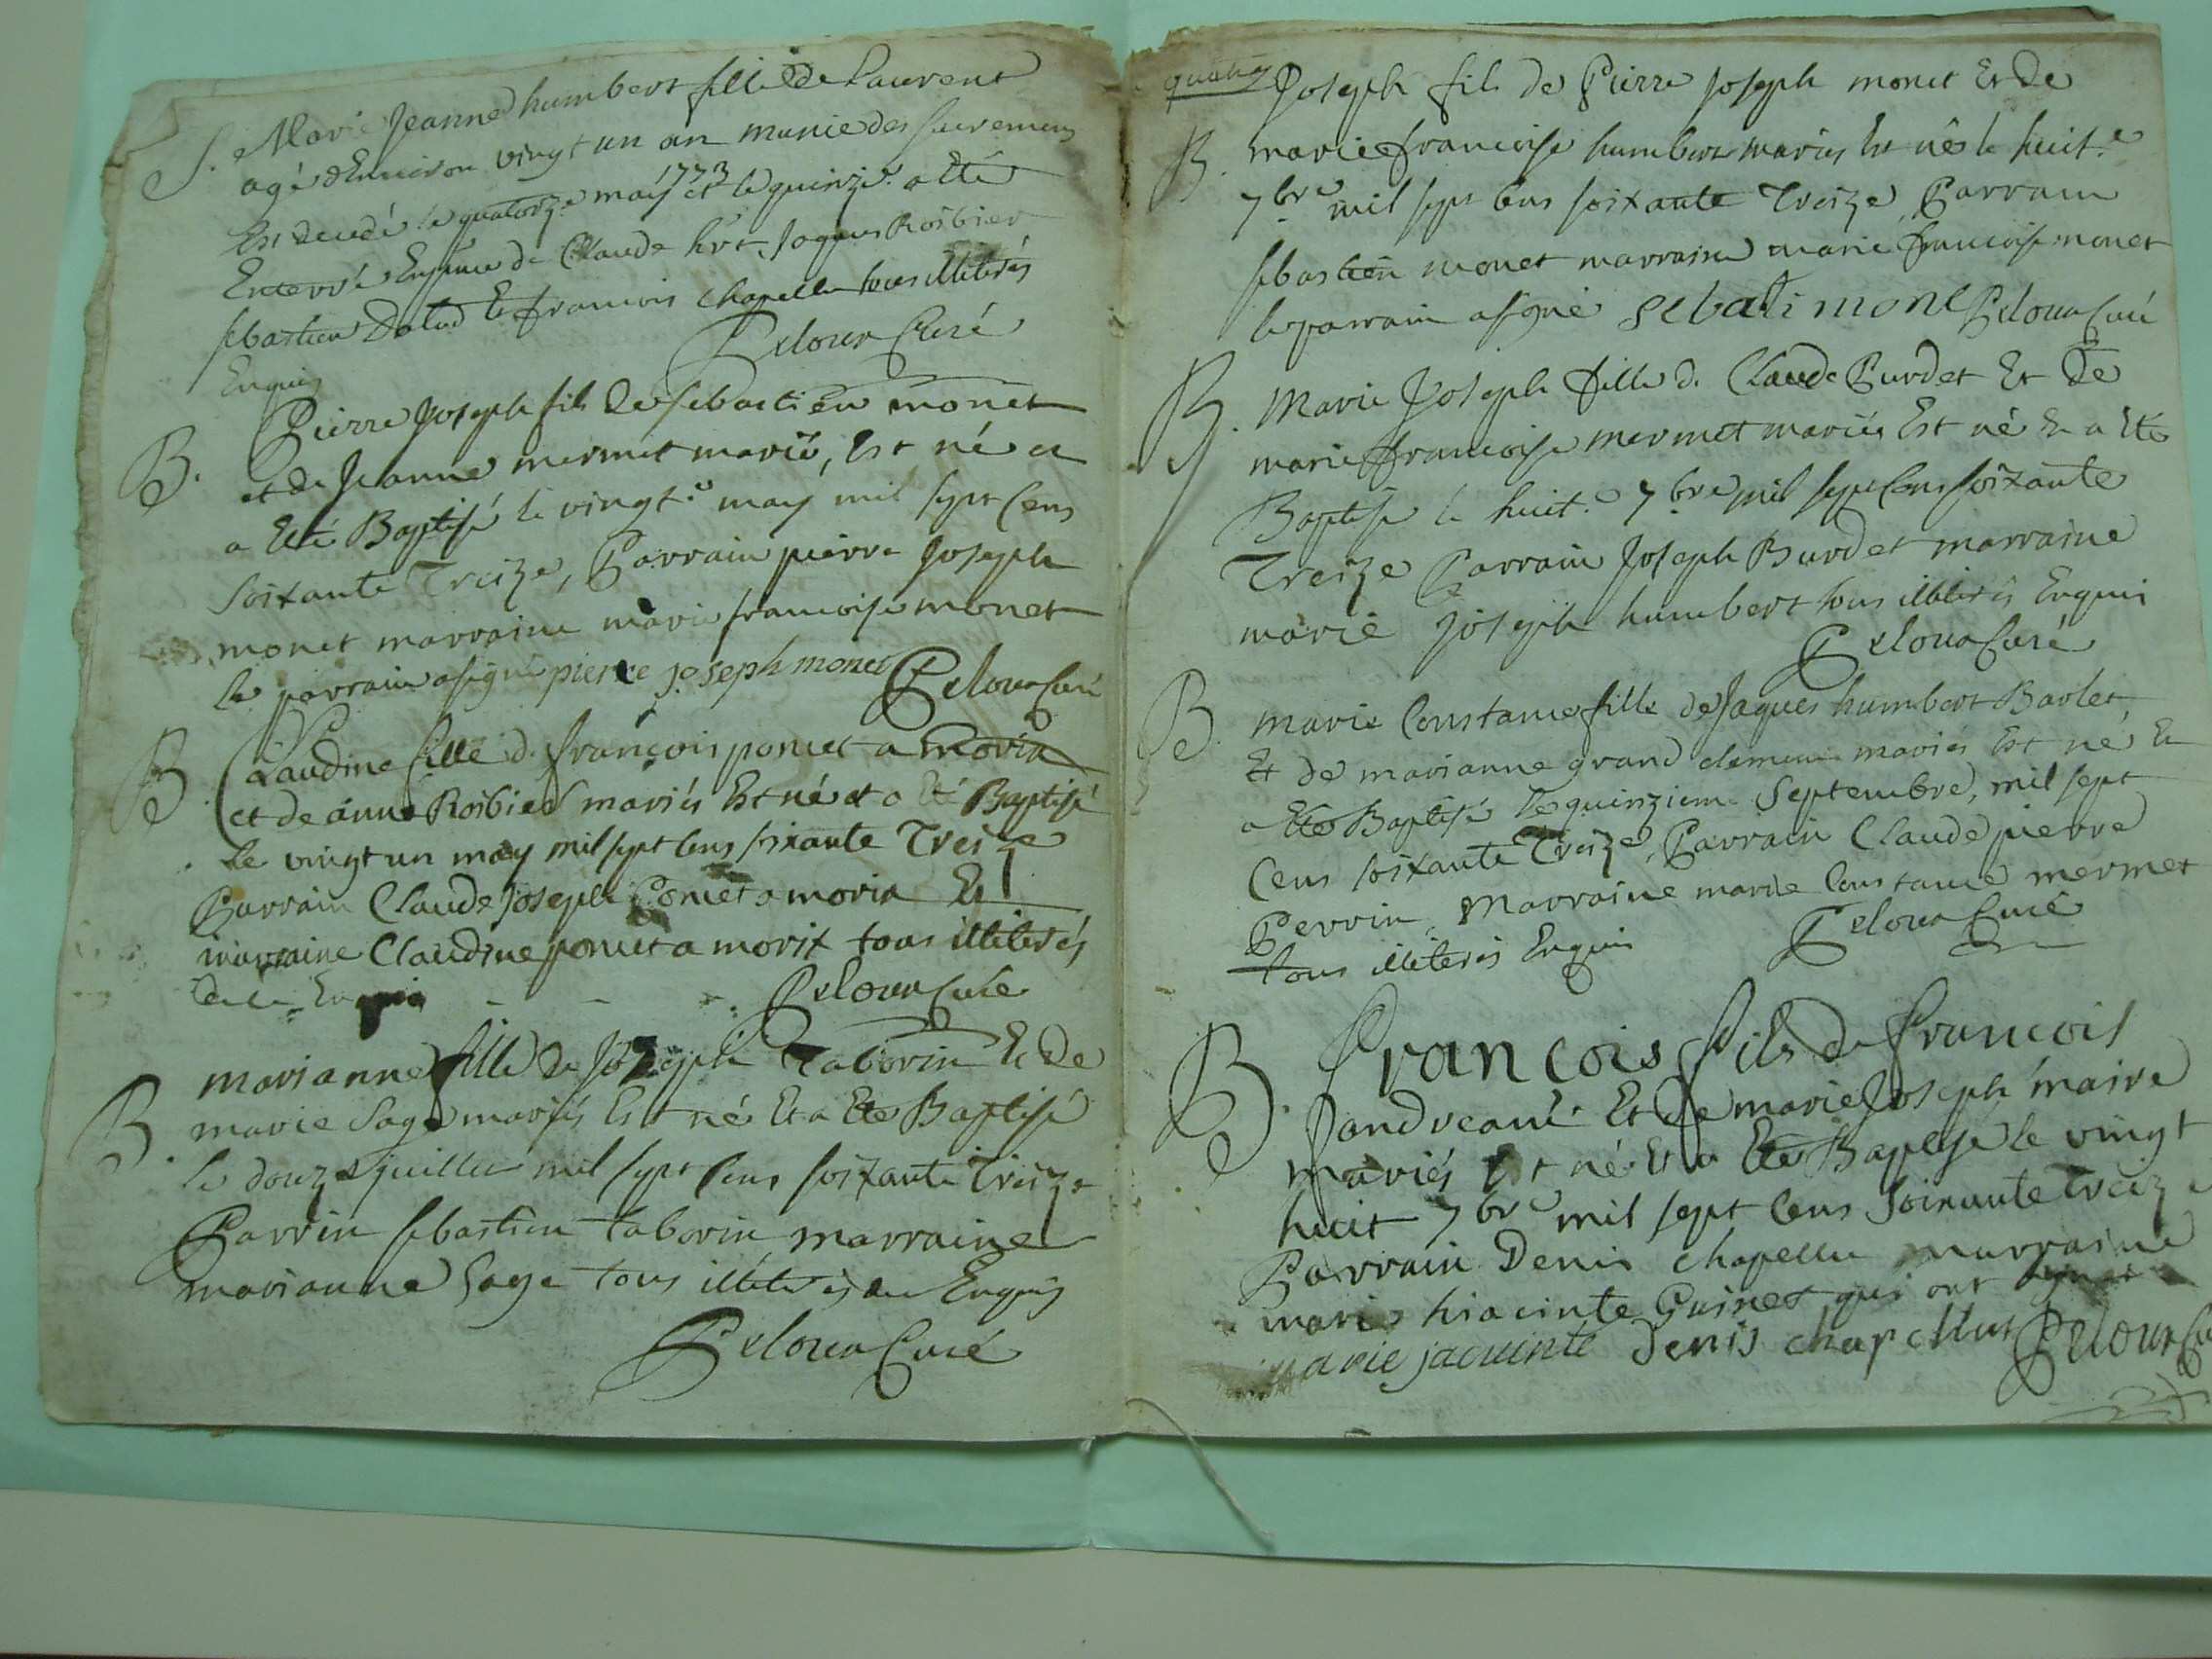 S. Marie Jeanne humbert fille de Laurent
agé denviron vingt un an munie des sacremens
Est decedé le quatorze may 1773 et le quinze a Eté
Enterré En presence de Claude hrt Jaques Roibier
sebastien Dalod Et francois Chapellu tous illiterés
Enquis Peloux Curé
B. Pierre Joseph fils de sebastien monet
et de Jeanne mermet mariés, Est né et
a Eté Baptisé le vingt.e may mil sept Cens
soixante Treize, Parrain pierre Joseph
monet marraine marie francoise monet
le parrain a signé pierre joseph monet Peloux Curé
B. Claudine fille de françois poncet a morix
et de anne Roibier mariés Est né et a Eté Baptisé
le vingt un may mil sept Cens soixante Treize
Parrain Claude Joseph Poncet a morix Et
marraine Claudine poncet a morix tous illiterés
Enquis Peloux Curé
B. marianne fille de Joseph Taborin Et de
marie Sage mariés Est né Et a Eté Baptisé
le douze juillet mil sept Cens soixante Treize
Parrin sebastien taborin marraine
marianne Sage tous illiterés Enquis
Peloux Curé
quatre
Joseph fils de Pierre Joseph monet Et de
B. marie francoise humbert mariés Est né le huit.e
7bre mil sept Cens soixante Treize, Parrain
sebastien monet marraine marie francoise monet
le parrain a signé sebasti mone Peloux Curé
B. Marie Joseph fille de Claude Burdet Et De
marie francoise mermet mariés Est né Et a Eté
Baptisé le huit.e 7bre mil sept Cens soixante
Treize Parrain Joseph Burdet marraine
marie joseph humbert tous illiterés Enquis
Peloux Curé
B. marie Constance fille de Jaques humbert Barlet
Et de marianne grand clement mariés Est né Et
a Eté Baptisé le quinziem Septembre, mil sept
Cens soixante Treize, Parrain Claude pierre
Perrin, Marraine marie Constance mermet
tous illiterés Enquis Peloux Curé
B. François fils de francois
Et de marie Joseph maire
mariés Est né Et a Eté Baptisé le vingt
huit 7bre mil sept Cens soixante treize
Parrain Denis Chapellu marraine
marie hiacinte Guinet qui ont signé
marie jacuinte Denis chapellut Peloux Cu